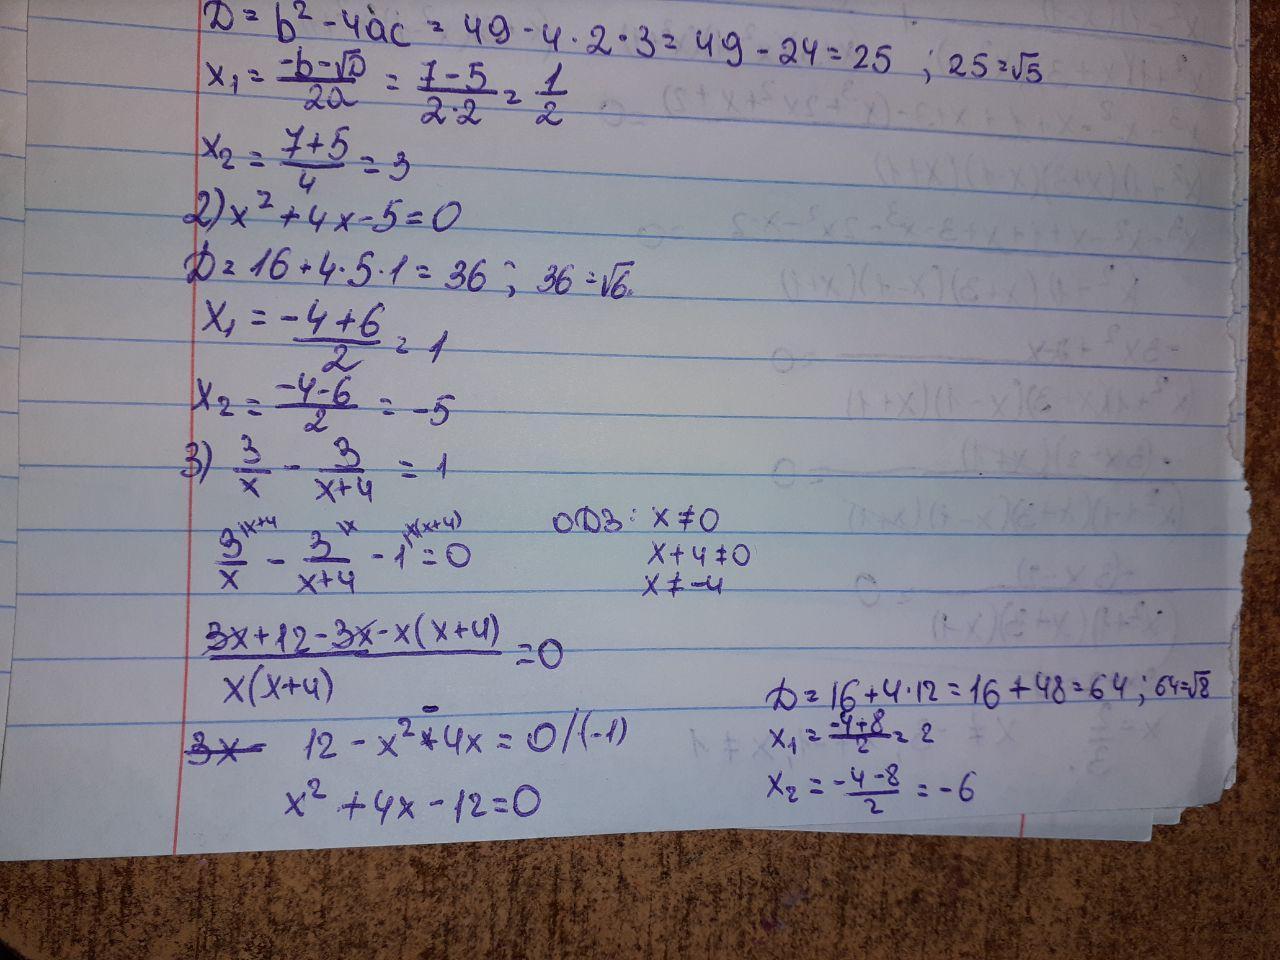 D = b² - 4ac = 49 - 4·2·3 = 49 - 24 = 25 ; 25=√5
x₁ = (-b-√D)/2a = (7-5)/(2·2) = 1/2
x₂ = (7+5)/4 = 3
2) x² + 4x - 5 = 0
D = 16 + 4·5·1 = 36 ; 36 = √6.
x₁ = (-4+6)/2 = 1
x₂ = (-4-6)/2 = -5
3) 3/x - 3/(x+4) = 1
3/x |x+4 - 3/(x+4) |x - 1 |x(x+4) = 0
ОДЗ: x ≠ 0
x + 4 ≠ 0
x ≠ -4
(3x+12-3x-x(x+4))/(x(x+4)) = 0
3x- 12 - x² - 4x = 0 /(-1)
x² + 4x - 12 = 0
D = 16 + 4·12 = 16 + 48 = 64 ; 64=√8
x₁ = (-4+8)/2 = 2
x₂ = (-4-8)/2 = -6